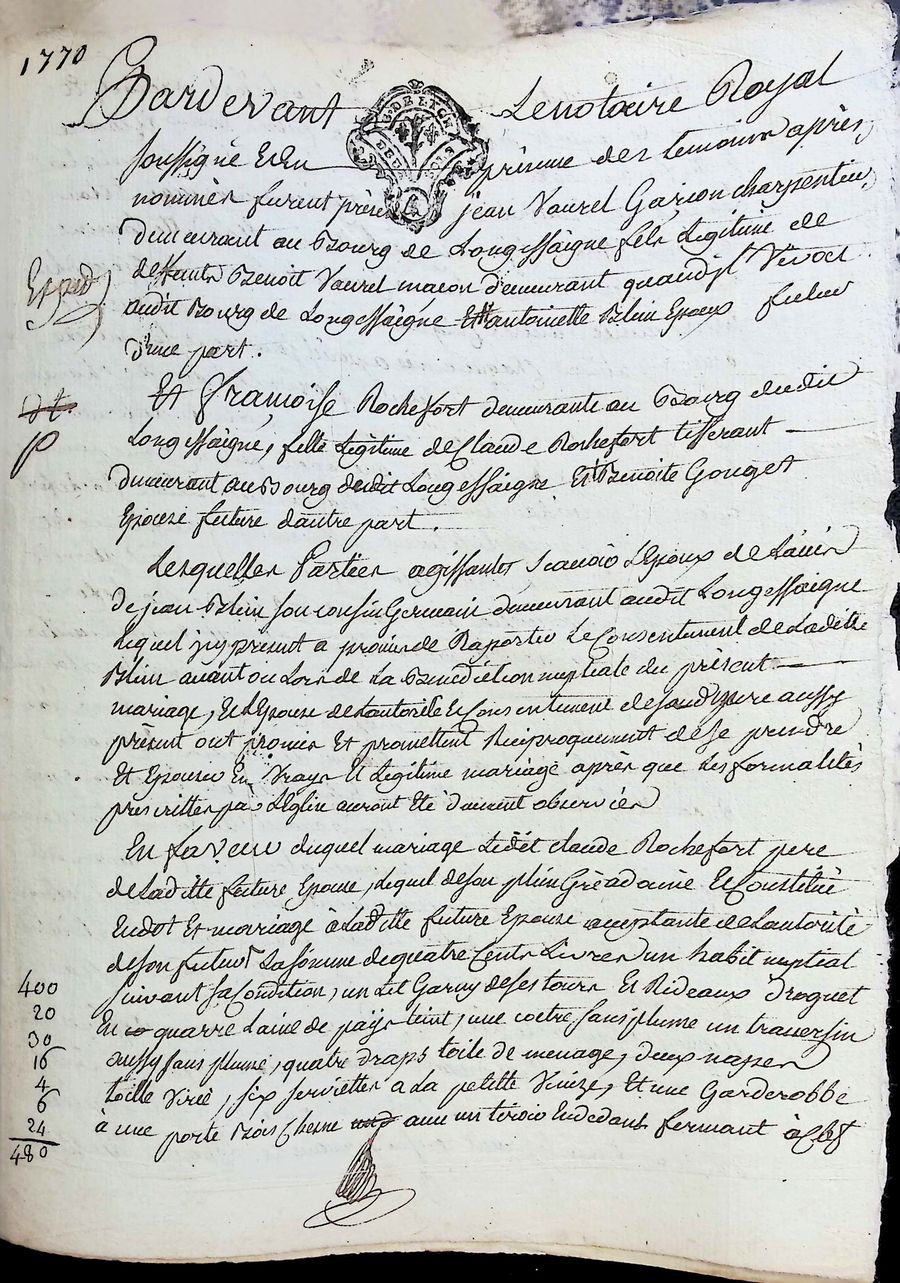 1770
Pardevant Le notaire Royal
G. DE LYON
DEUX SOLS
soussigné Et En presence des temoins après
nommés furent présents jean Vaurel Garçon charpentier
demeurant au Bourg de Longessaigne fils Legitime de
defunt Benoit Vaurel macon demeurant quand il Vivoit
audit Bourg de Longessaigne Et antoinette Blein Epoux futur
d'une part.
Expedié
Et françoise Rochefort demeurante au Bourg dudit
Longessaigne, fille Legitime de Claude Rochefort tisserant
demeurant au Bourg dudit Longessaigne Et Benoite Gouget
Epouse future dautre part.
Lesquelles Parties agissantes scavoir L'Epoux de L'avis
de jean Blein son cousin Germain demeurant audit Longessaigne
Lequel jcy present a promis de Raporter Le Consentement de Laditte
Blein avant ou Lors de La Benediction nuptiale du present
mariage, Et L'Epouse de Lautorité Et Consentement de sondit pere aussy
présent ont promis Et promettent Réciproquement de se prendre
Et Epouser En Vraye Et Legitime mariage après que Les formalités
prescrittes par L'Eglise auront Eté dument observées
En faveur duquel mariage Ledit claude Rochefort pere
de Laditte future Epouse, Lequel de son plein Gré a donné Et Constitué
En dot Et mariage à Laditte future Epouse acceptante de Lautorité
de son futeur La somme de quatre Cents Livres un habit nuptial
suivant sa Condition, un Lit Garny de ses tours Et Rideaux droguet
En quarré Laine de païs teint, une coetre sans plume un traversin
aussy sans plume, quatre draps toile de menage, deux nappes
toille Virié, six serviettes a La petitte Venize, Et une Garderobbe
à une porte Bois Chesne avec un tiroir En dedans fermant à Clef
400
20
30
16
4
6
24
480